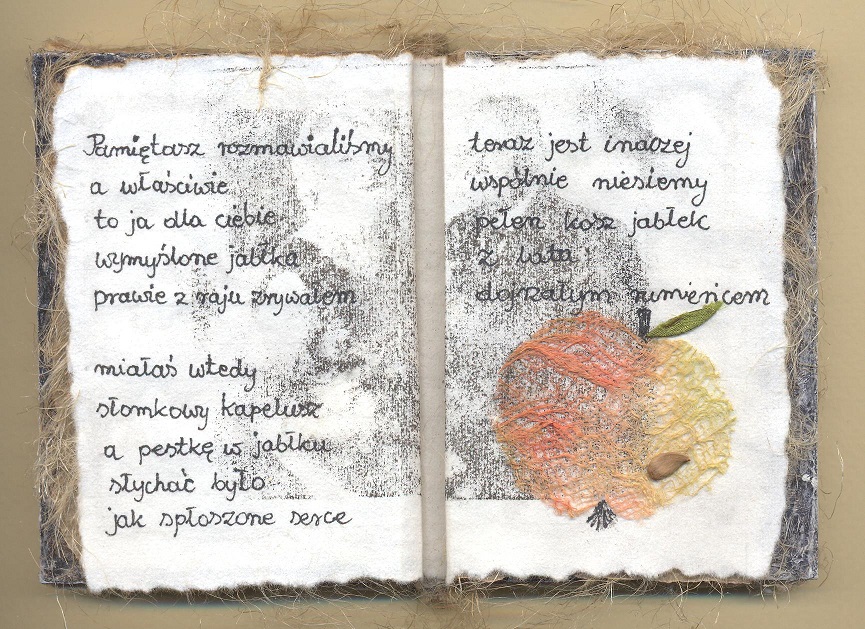 Pamiętasz rozmawialiśmy
a właściwie
to ja dla ciebie
wymyślone jabłka
prawie z raju zrywałem
miałaś wtedy
słomkowy kapelusz
a pestkę w jabłku
słychać było
jak spłoszone serce
teraz jest inaczej
wspólnie niesiemy
pełen kosz jabłek
z lata
dojrzałym rumieńcem